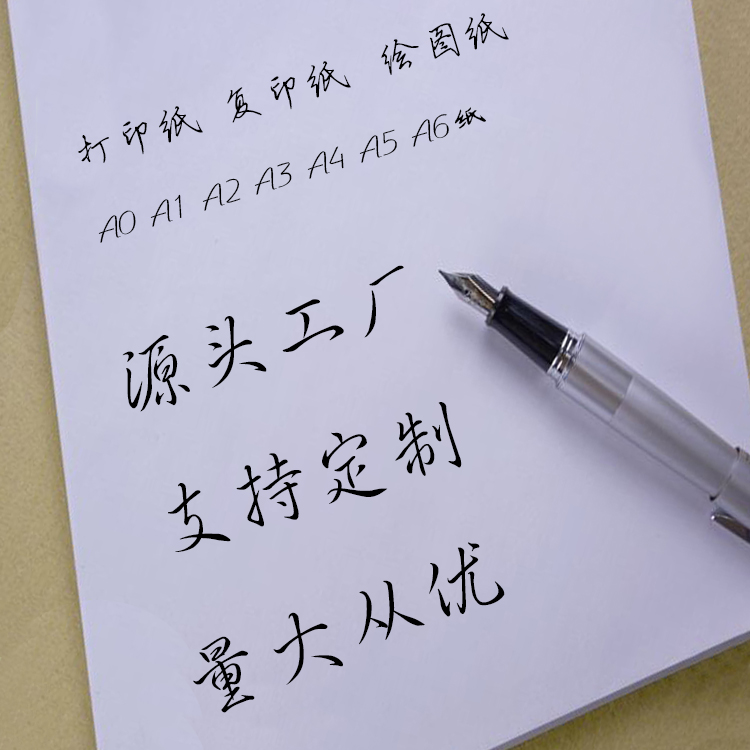 打印纸 复印纸 绘图纸
A0 A1 A2 A3 A4 A5 A6纸
源头工厂
支持定制
量大从优